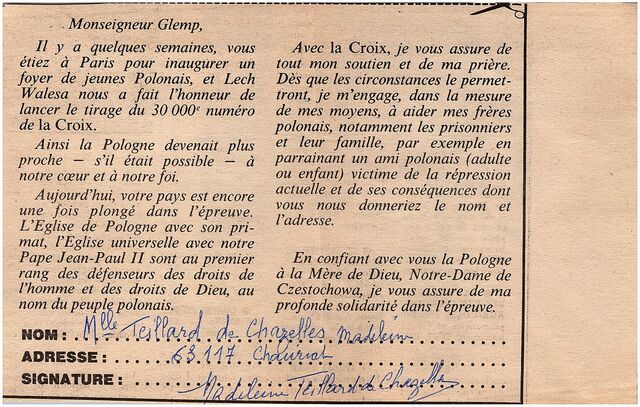 Monseigneur Glemp,
Il y a quelques semaines, vous
étiez à Paris pour inaugurer un
foyer de jeunes Polonais, et Lech
Walesa nous a fait l'honneur de
lancer le tirage du 30 000e numéro
de la Croix.
Ainsi la Pologne devenait plus
proche – s'il était possible – à
notre cœur et à notre foi.
Aujourd'hui, votre pays est encore
une fois plongé dans l'épreuve.
L'Eglise de Pologne avec son pri-
mat, l'Eglise universelle avec notre
Pape Jean-Paul II sont au premier
rang des défenseurs des droits de
l'homme et des droits de Dieu, au
nom du peuple polonais.
Avec la Croix, je vous assure de
tout mon soutien et de ma prière.
Dès que les circonstances le permet-
tront, je m'engage, dans la mesure
de mes moyens, à aider mes frères
polonais, notamment les prisonniers
et leur famille, par exemple en
parrainant un ami polonais (adulte
ou enfant) victime de la répression
actuelle et de ses conséquences dont
vous nous donneriez le nom et
l'adresse.
En confiant avec vous la Pologne
à la Mère de Dieu, Notre-Dame de
Czestochowa, je vous assure de ma
profonde solidarité dans l'épreuve.
NOM : Mlle Teillard de Chazelles Madeleine
ADRESSE : 63117 Chauriat
SIGNATURE : Madeleine Teillard de Chazelles